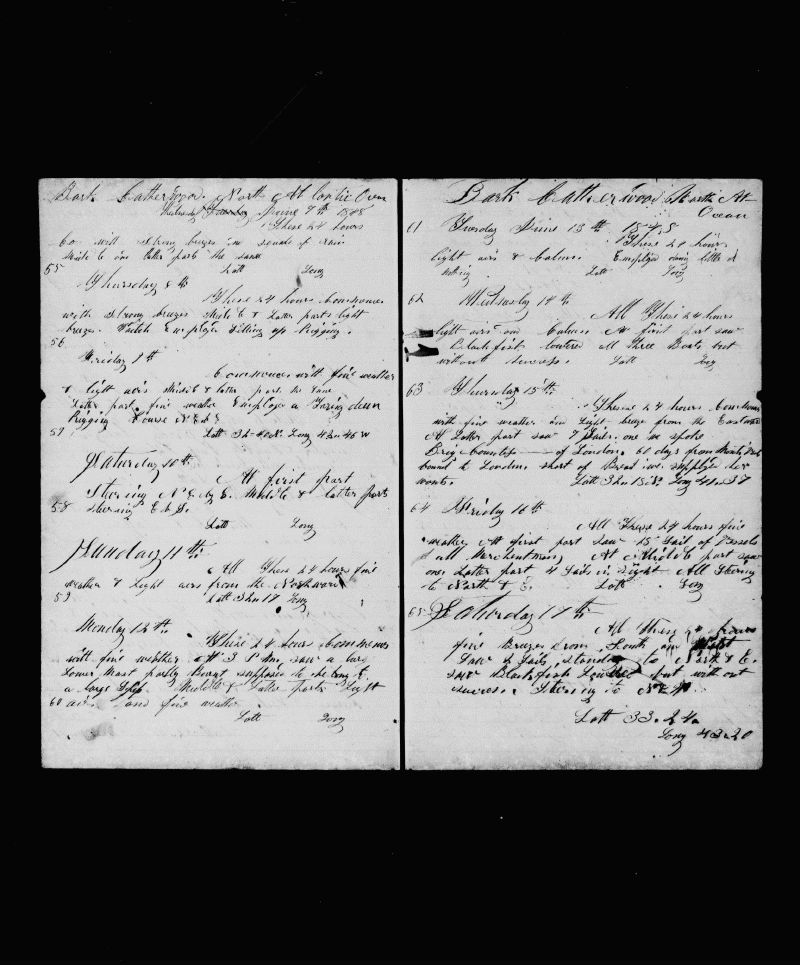 Bark Catherwood. North Atlantic Ocean
Wednesday June 7th 1848
These 24 hours
Co with Strong breezes squals of rain
Middle & latter parts the same
55 Latt Long
Thursday 8th
These 24 hours Commences
with strong breezes Middle & Latter parts light
breezes. Watch Employed fitting up Rigging.
56
Friday 9th
Commences with fine weather
& light airs Middle & latter parts the same
Latter part fine weather Employed
Rigging Course N E
57 Latt 32 Long 42 46 W
Saturday 10th
At first part
Stering N E by E. Middle & latter parts
58 stering E
Latt Long
Sunday 11th
All These 24 hours fine
weather & Light airs from the Northward
59 Latt 32 17 Long
Monday 12th
These 24 hours Commences
with fine weather At 3 P.M. saw a large
Lower Mast partly Burnt supposed to belong to
a large Ship. Middle & Latter parts light
60 airs and fine weather
Latt Long
Bark Catherwood North At
Ocean
61 Tuesday June 13th 1848
These 24 hours
light airs & Calmes Employed doing little or
nothing Latt Long
62 Wednesday 14th
All These 24 hours
light airs and Calmes At first part saw
Blackfish lowered all three Boats but
without success. Latt Long
63 Thursday 15th
These 24 hours Commences
with fine weather and Light breeze from the Eastward
At Latter part saw 7 Sails. one we spoke
Brig Countess of London. 61 days from
bound to London. short of Bread we supplied her
wants. Latt 32 18 N. Long 41 37
64 Friday 16th
All These 24 hours fine
weather At first part saw 15 Sail of Vessels
all Merchantmen, At Middle part saw
one Latter part 4 Sails in sight All Stering
to North & E. Latt Long
65 Saturday 17th
All These 24 hours
fine Breezes from South and West
Saw 2 Sails, standing to North & E.
saw Blackfish Lowered but without
success. Stering to N E
Latt 33.24.
Long 43.20